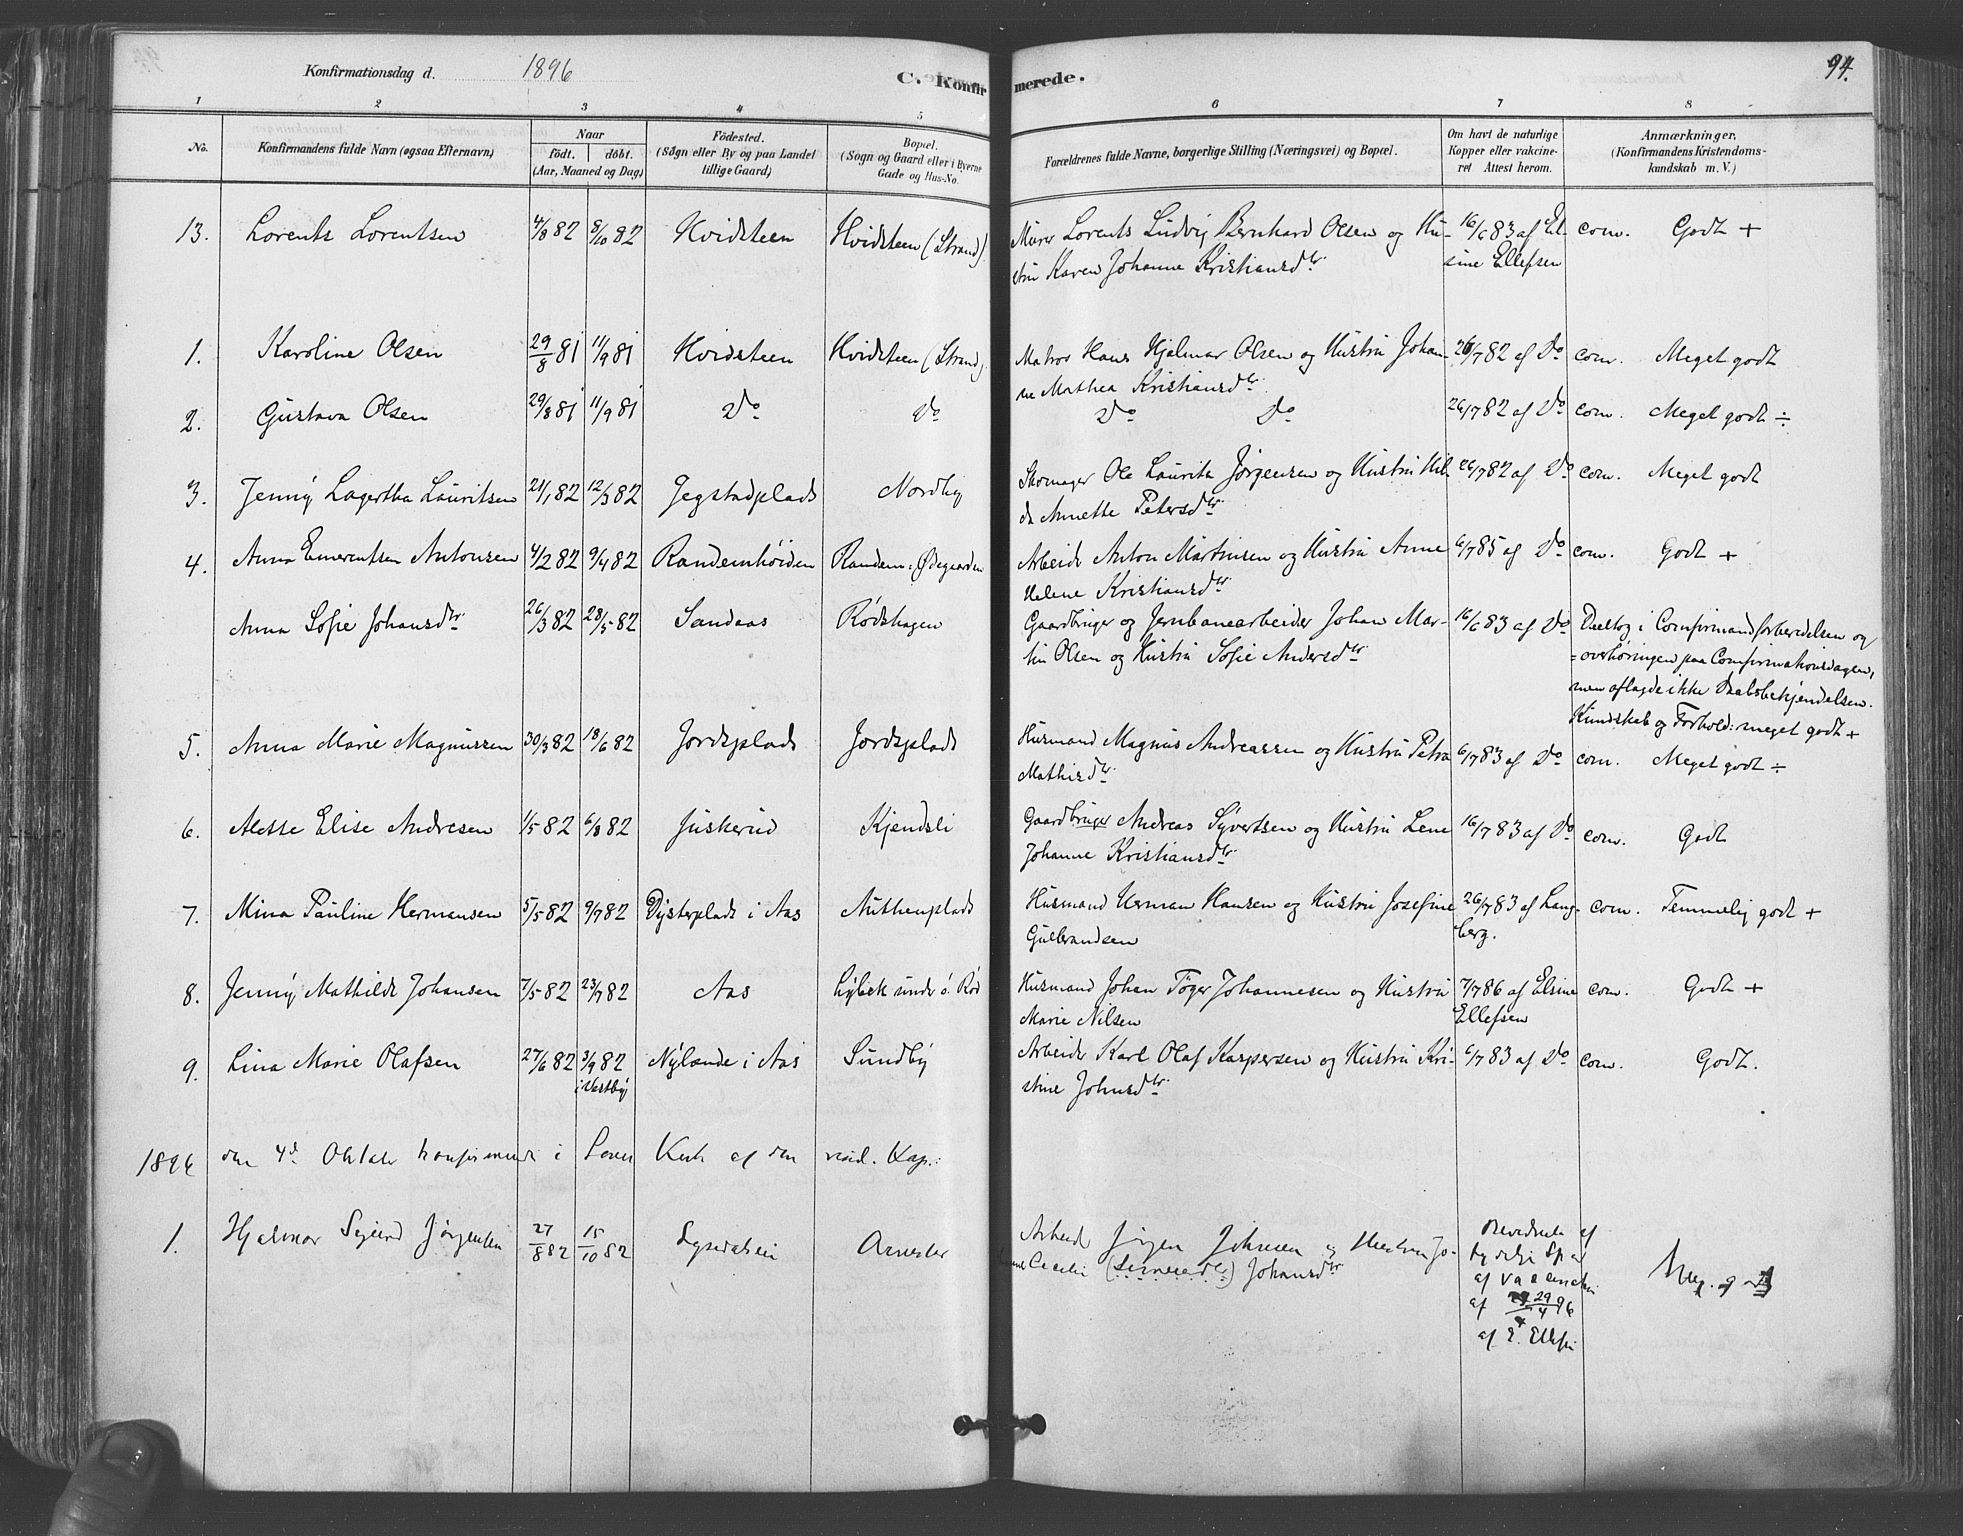 Konfirmationsdag d. 1896
C. Konfirmerede.
94.
1 2 3 4 5 6 7 8
No.
Konfirmandens fulde Navn (ogsaa Efternavn)
Naar
födt. döbt.
(Aar, Maaned og Dag)
Födested.
(Sogn eller By og paa Landet
tillige Gaard)
Bopæl.
(Sogn og Gaard eller i Byerne
Gade og Hus-No.
Forældrenes fulde Navne, borgerlige Stilling (Næringsvei) og Bopæl.
Om havt de naturlige
Kopper eller vakcine-
ret Attest herom.
Anmærkninger.
(Konfirmandens Kristendoms-
kundskab m. V.)
13. Lorents Lorentsen 4/8 82 8/10 82 Hvidsteen Hvidsteen (Strand). Murer Lorents Ludvig Bernhard Olsen og Hu- 16/6 83 af El- com. Godt +
stru Karen Johanne Kristiansdtr. sine Ellefsen
1. Karoline Olsen 29/8 81 11/9 81 Hvidsteen Hvidsteen (Strand). Matros Hans Hjalmar Olsen og Hustru Johan- 26/7 82 af Do com. Meget godt
ne Mathea Kristiansdtr.
2. Gustava Olsen 29/8 81 11/9 81 Do Do Do Do 26/7 82 af Do com. Meget godt ÷
3. Jenny Lagertha Lauritsen 21/1 82 12/3 82 Jegstadplads Nordby Skomager Ole Laurits Jørgensen og Hustru Hil- 26/7 82 af Do com. Meget godt
da Annette Petersdtr.
4. Anna Emerentsen Antonsen 4/2 82 9/4 82 Randemhöiden Randem: Ødegaarden Arbeids Anton Martinsen og Hustru Anne 6/7 85 af Do com. Godt +
Helene Kristiansdtr.
Anna Sofie Johansdtr 26/3 82 28/5 82 Sandaas Rødshagen Gaardbruger og Jernbanearbeider Johan Mar- 16/6 83 af Do Deeltog i Comfirmandforberedelsen og
tin Olsen og Hustru Sofie Andersdtr =overhøringen paa Comfirmationsdagen,
men aflagde ikke Daabsbekjendelsen.
Kundskab og Forhold: meget godt +
5. Anna Marie Magnussen 30/3 82 18/6 82 Jordsplads Jordsplads Husmand Magnus Andreassen og Hustru Petra 6/7 83 af Do com. Meget godt ÷
Mathisdtr
6. Alette Elise Andresen 1/5 82 6/8 82 Juskerud Kjendsli Gaardbruger Andreas Syvertsen og Hustru Lene 16/7 83 af Do com. Godt
Johanne Kristiansdtr.
7. Mina Pauline Hermansen 5/5 82 9/7 82 Dysterplads i Aas Authenplads Husmand Herman Hansen og Hustru Josefine 26/7 83 af Lang- com. Temmelig godt +
Gulbrandsen berg.
8. Jenny Mathilde Johansen 7/5 82 23/7 82 Aas Lybek under ö. Rød Husmand Johan Töger Johannesen og Hustru 7/7 86 af Elsine com. Godt +
Marie Nilsen Ellefsen
9. Lina Marie Olafsen 27/6 82 3/9 82 Nylænde i Aas Sundby Arbeids Karl Olaf Kaspersen og Hustru Kri- 6/7 83 af Do com. Godt.
i Vestby stine Johnsdtr.
1896 den 4de Oktober konfirmerede i Soner Kirke af den resid. Kap.:
1. Hjalmar Sigurd Jörgensen 27/8 82 15/10 82 Arbeid Jörgen Johnsen og Hustru Jo-
Cecilie Johansdtr
af 29/4 96
af E. Ellefsen
Meg. godt